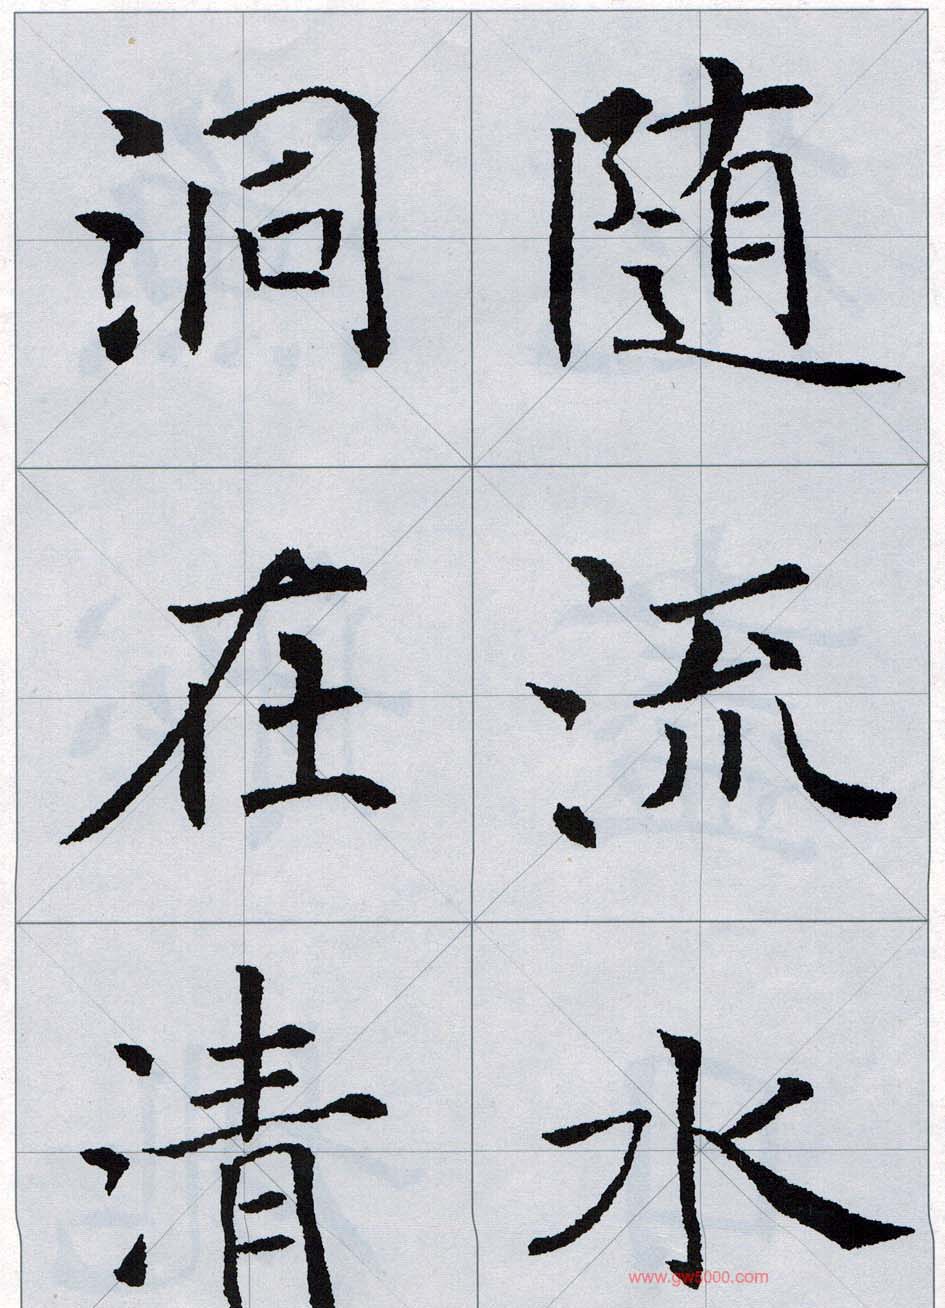 随流水
洞在清
www.gw5000.com